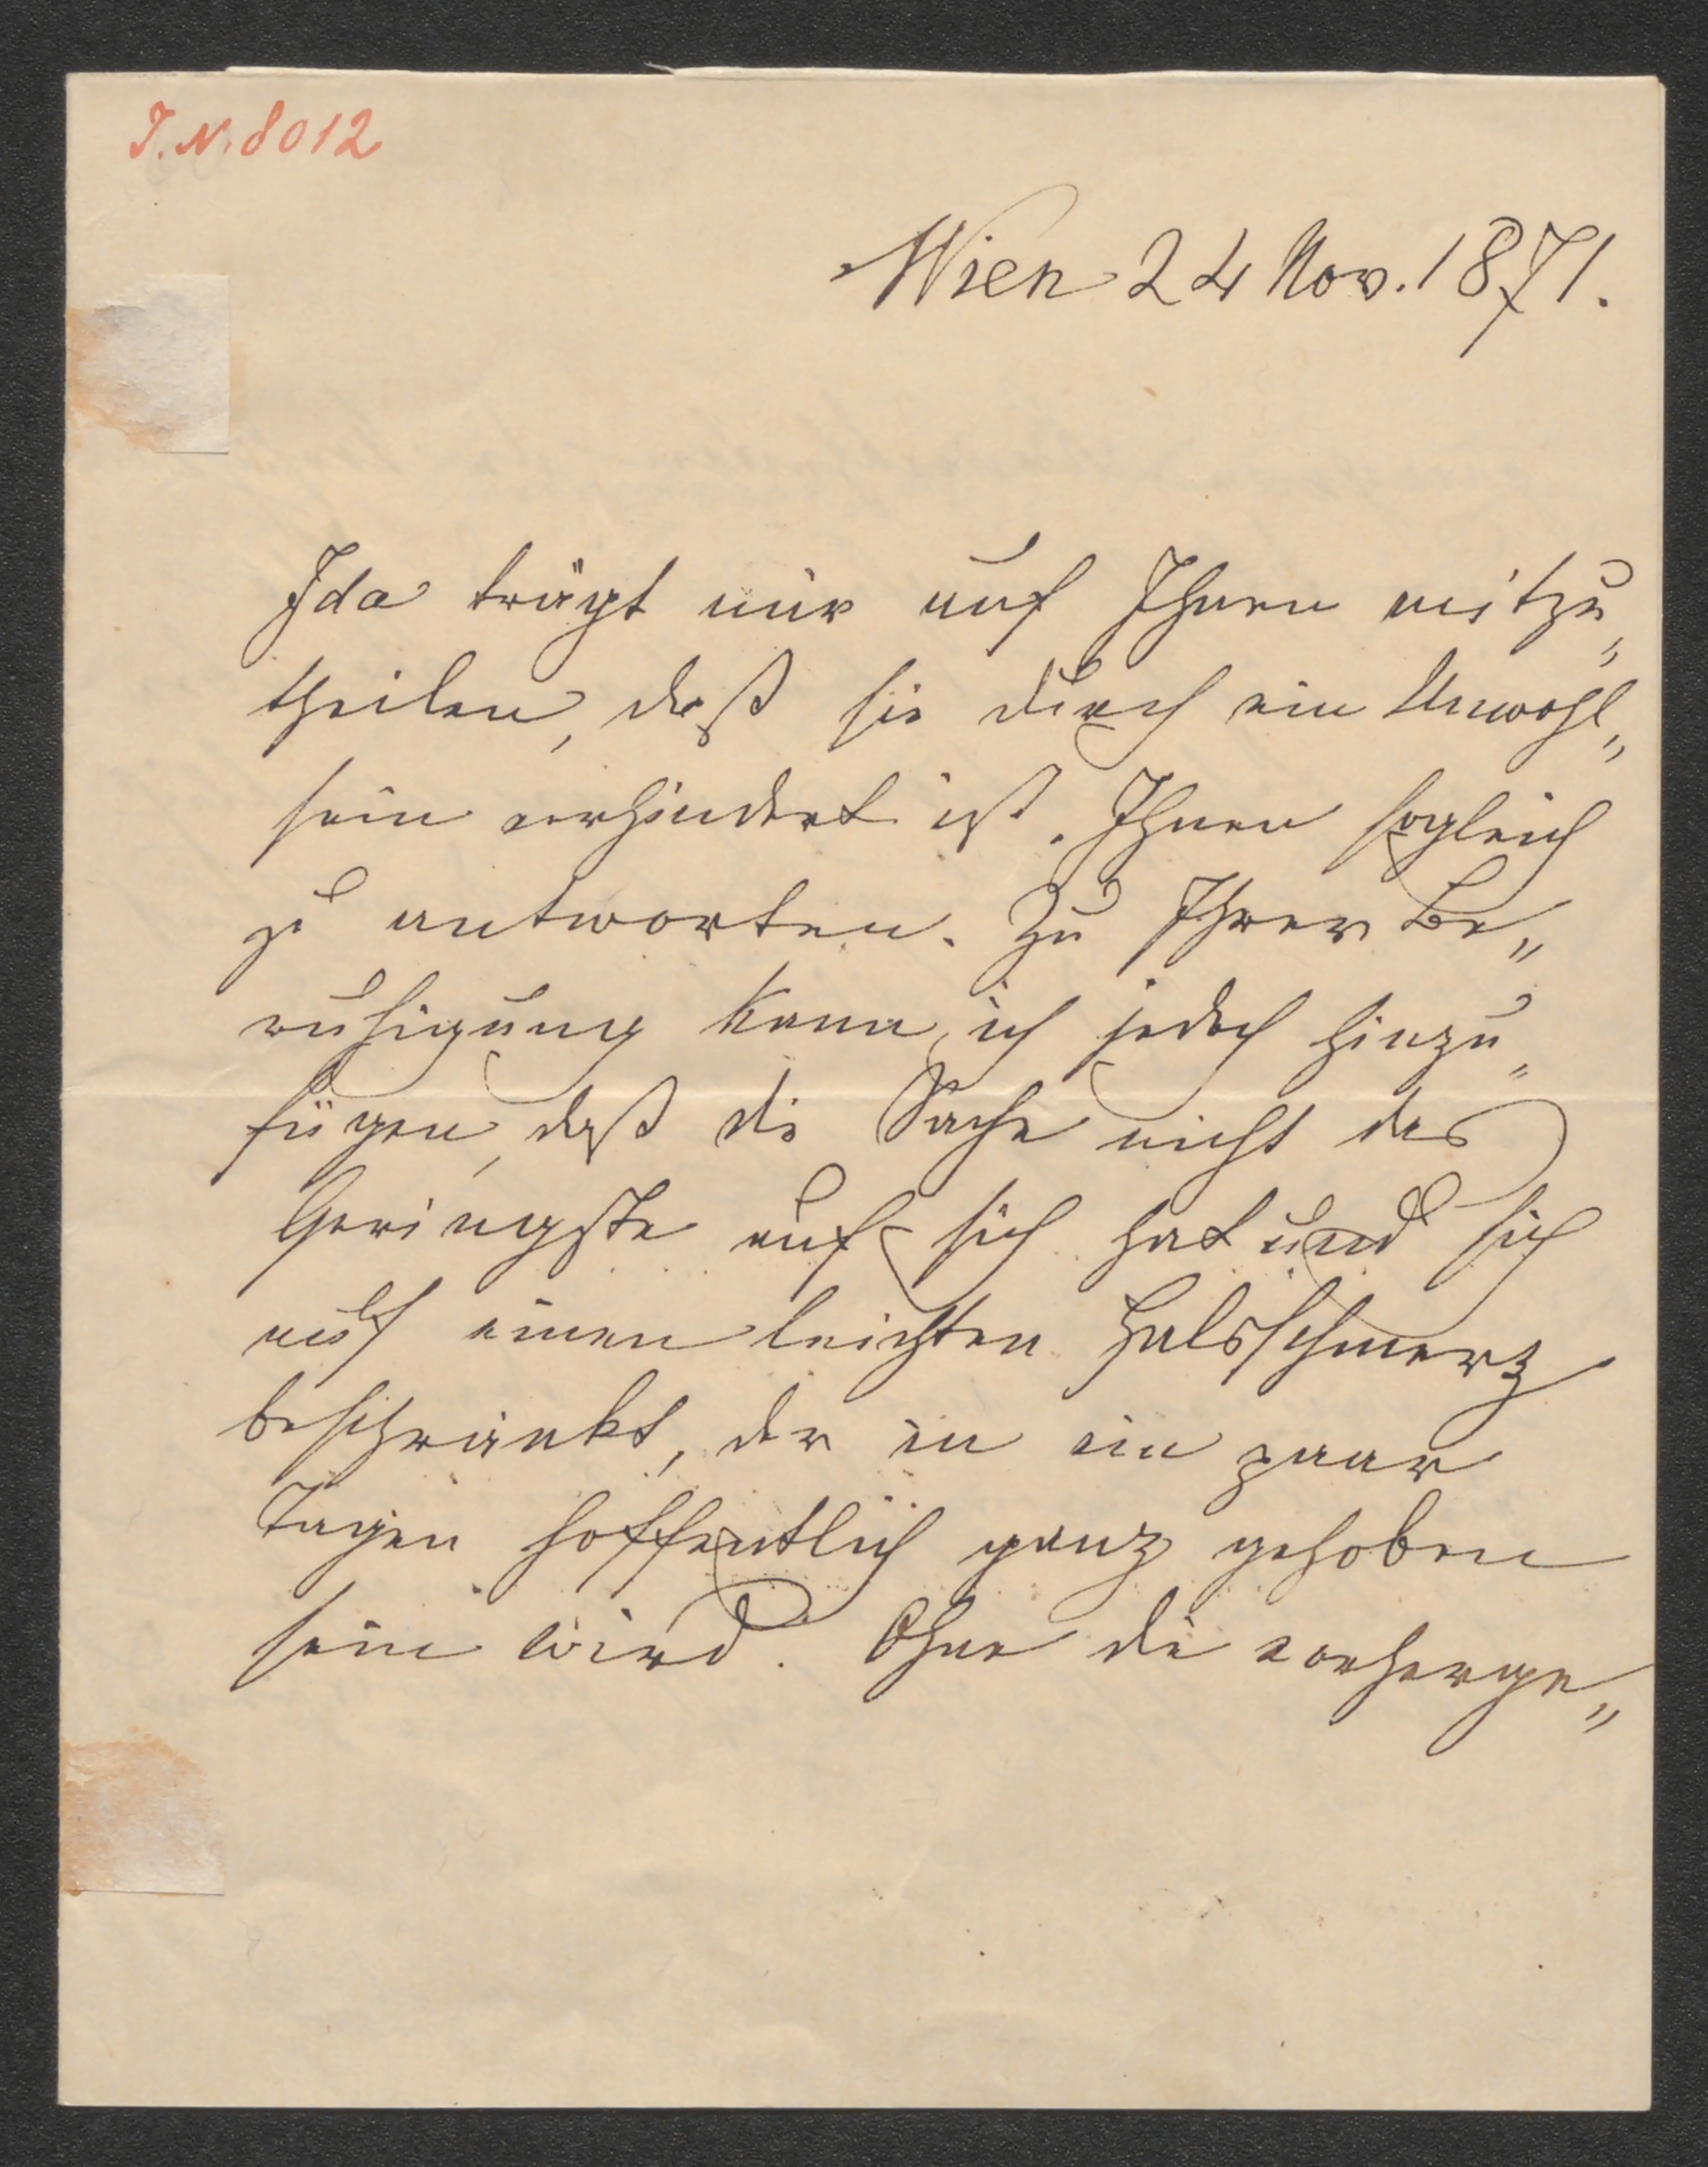 I.N. 8012
Wien 24 Nov. 1871.
Ida trägt mir auf Ihnen mitzu„
theilen, daß sie durch ein Unwohl„
sein verhindert ist. Ihnen sogleich
zu antworten. Zu Ihrer Be„
ruhigung kann ich jedoch hinzu„
fügen, daß die Sache nicht das
Geringste auf sich hat und sich
auf einen leichten Halsschmerz
beschränkt, der in ein paar
Tagen hoffentlich ganz gehoben
sein wird. Ohne die vorherge„